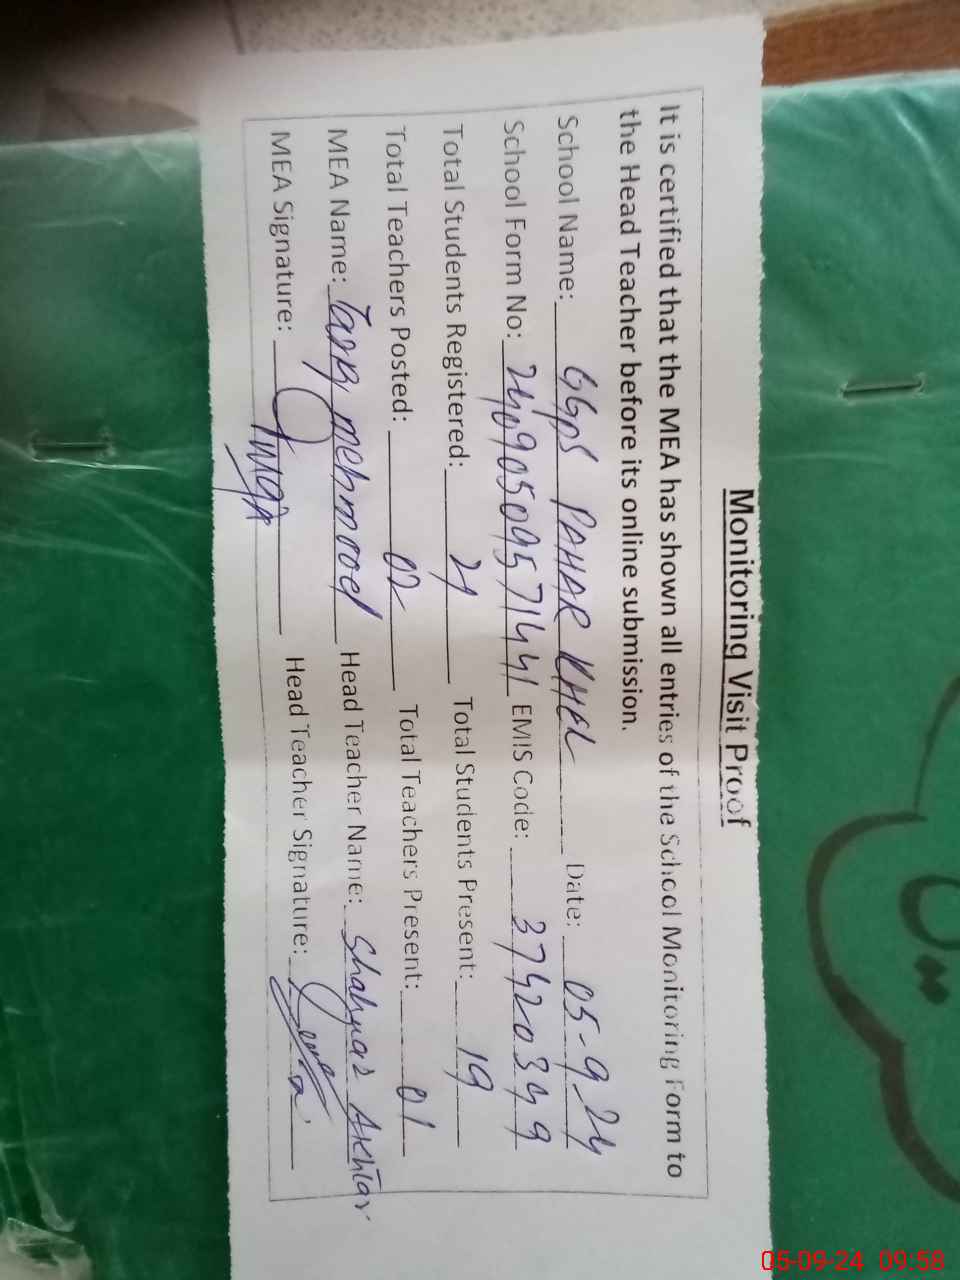 Monitoring Visit Proof
It is certified that the MEA has shown all entries of the School Monitoring Form to
the Head Teacher before its online submission.
School Name: GGPS PAHAR KHEL Date: 05-9-24
School Form No: EMIS Code:
Total Students Registered: 21 Total Students Present: 19
Total Teachers Posted: 02 Total Teachers Present: 01
MEA Name: Tariq mehmood Head Teacher Name: Akhtar
MEA Signature: Head Teacher Signature:
05-09-24 09:58